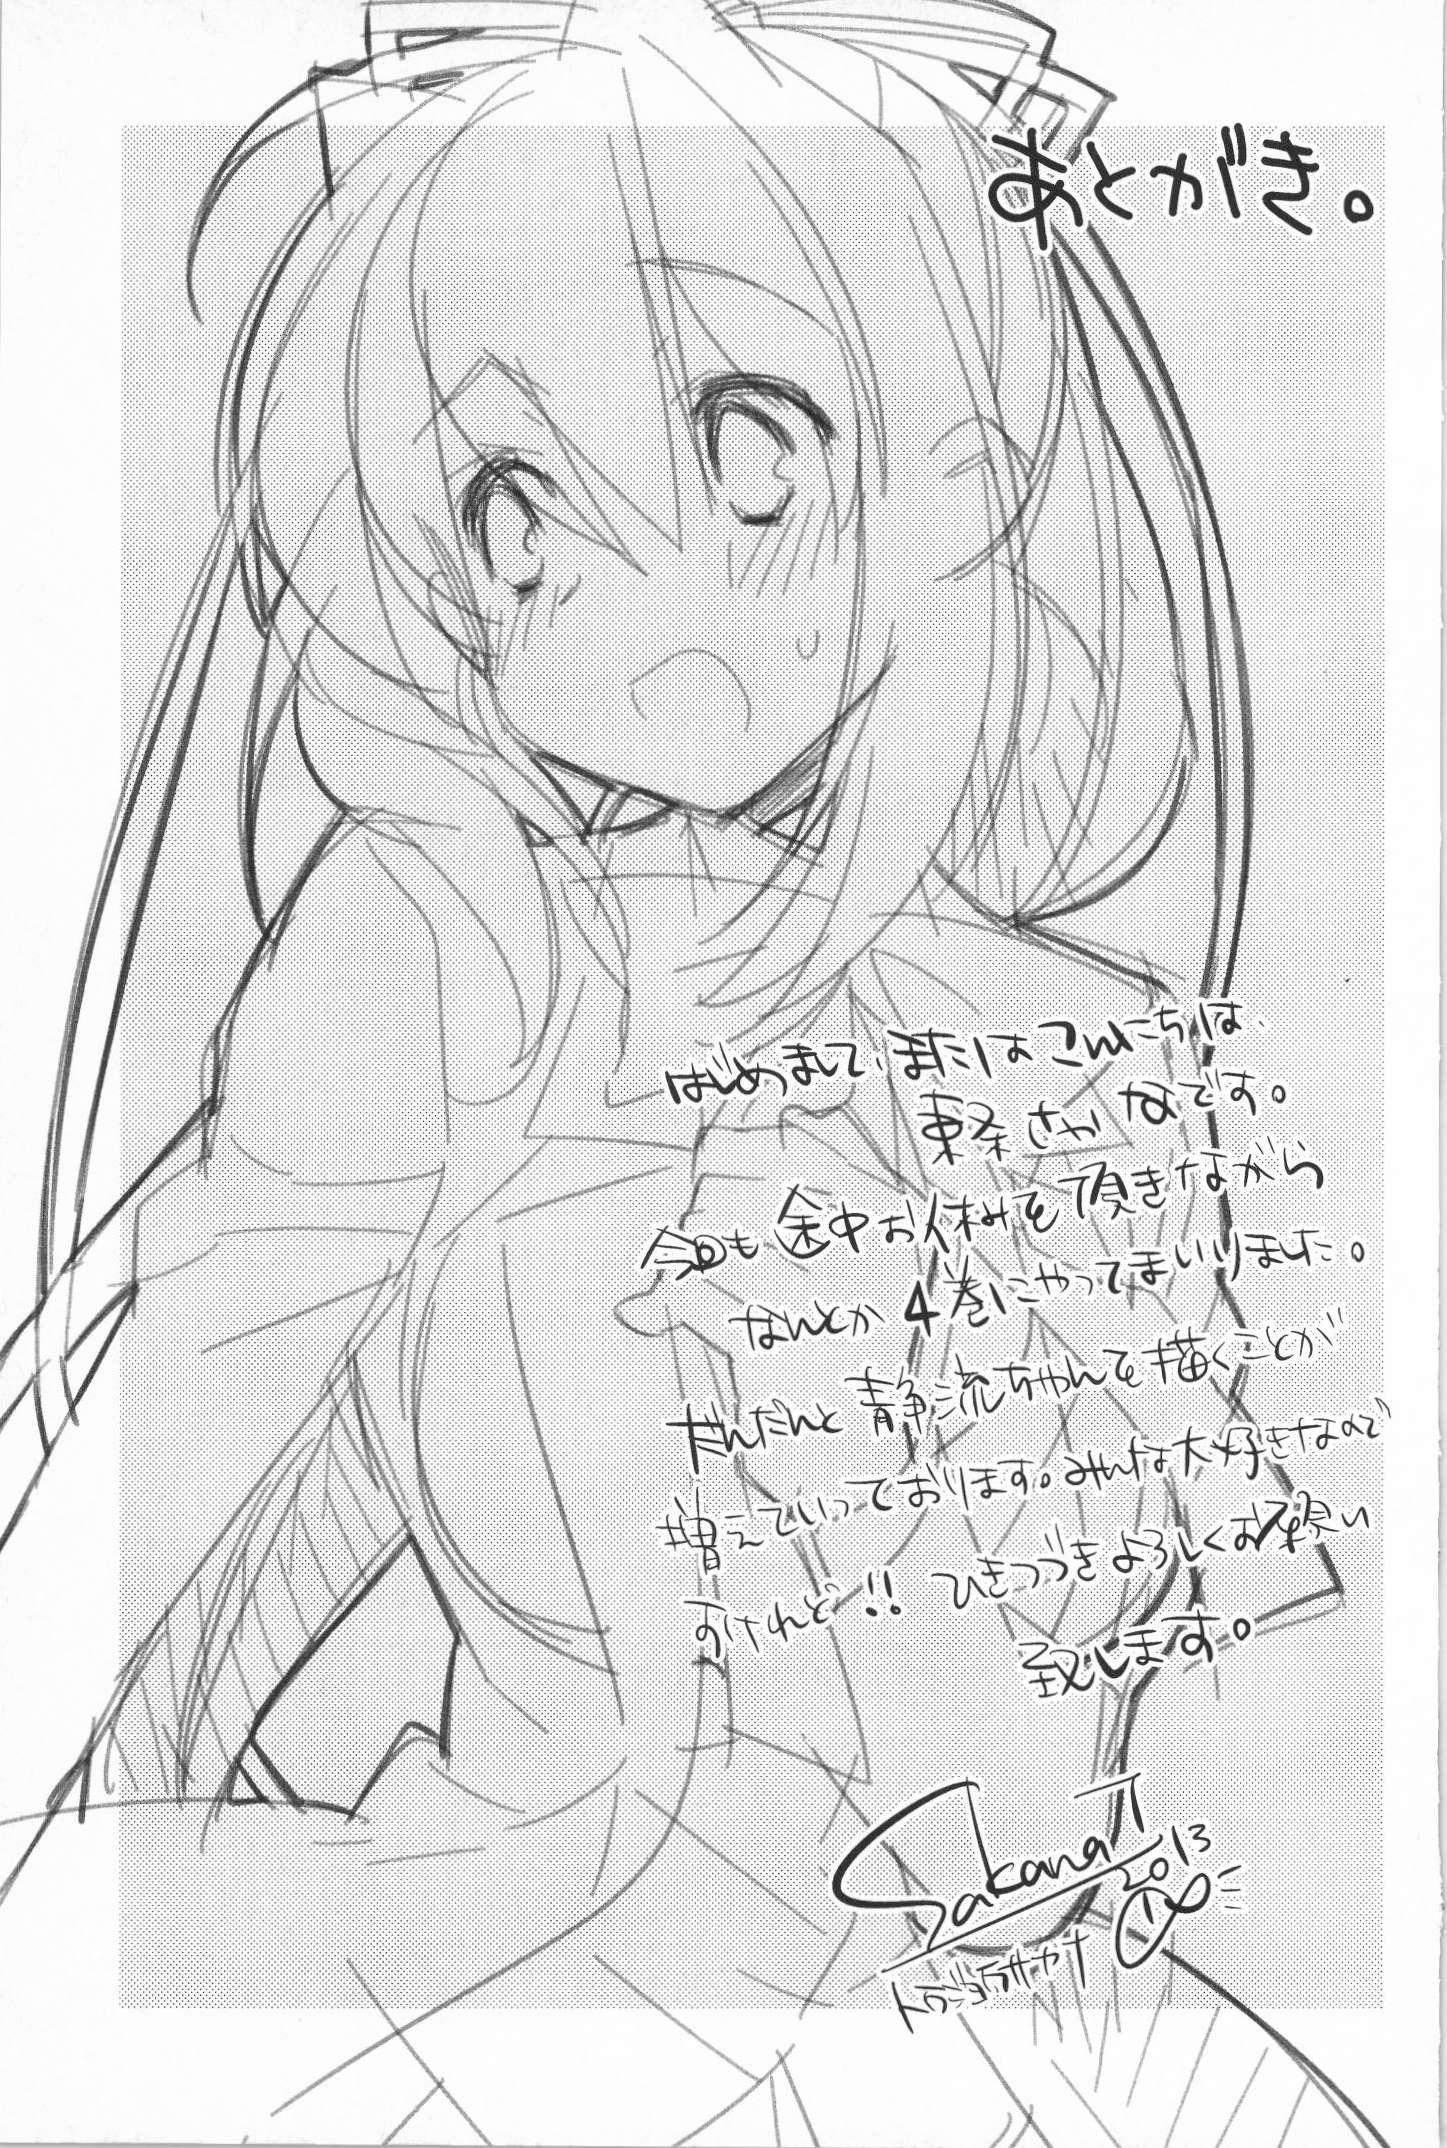 あとがき。
はじめまして、またはこんにちは、
東条さかなです。
今回も途中お休みを頂きながら
なんとか4巻にやってまいりました。
だんだんと静流ちゃんを描くことが
増えていっております。みんな大好きなので
すけれど!! ひきつづきよろしくお願い
致します。
Sakana T
2013
トウジョウサカナ